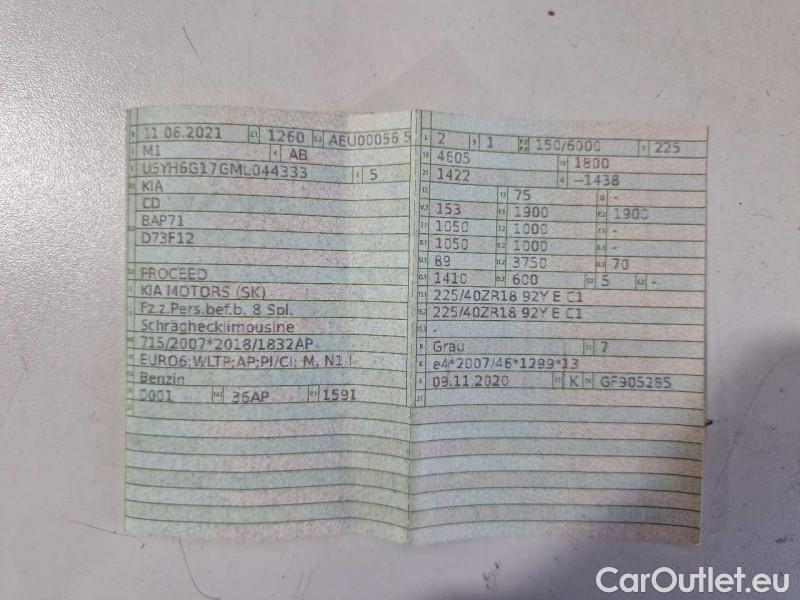 11.06.2021 1260 AEU00056 5
M1 AB
U5YH6G17GML044333 5
KIA
CD
BAP71
D73F12
PROCEED
KIA MOTORS (SK)
Fz.z.Pers.bef.b. 8 Spl.
Schräghecklimousine
715/2007*2018/1832AP
EURO6;WLTP;AP;PI/CI; M, N1 I
Benzin
0001 36AP 1591
2 1 150/6000 225
4605 1800
1422 —1438
75 -
153 1900 1900
1050 1000 -
1050 1000 -
89 3750 70
1410 600 5 -
225/40ZR18 92Y E C1
225/40ZR18 92Y E C1
-
Grau 7
e4*2007/46*1299*13
09.11.2020 K GF905285
CarOutlet.eu